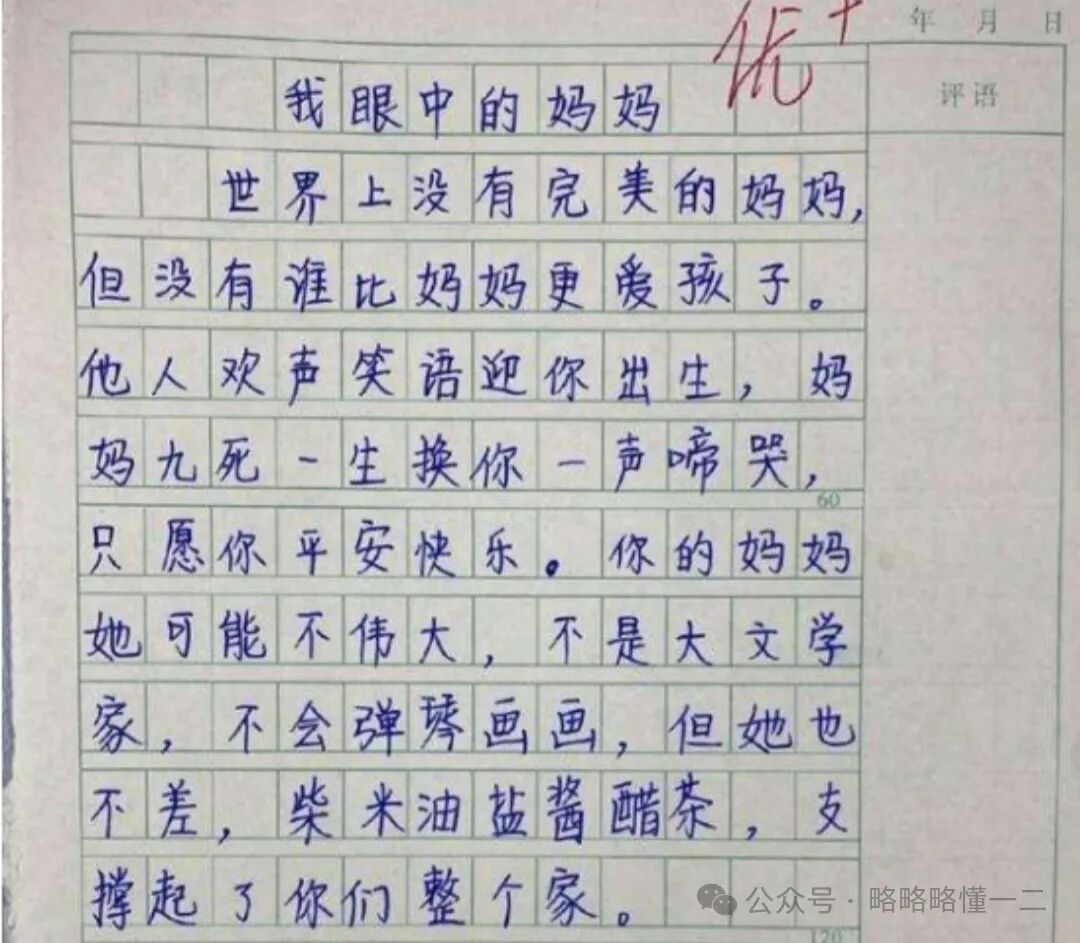 优+
年 月 日
评语
我眼中的妈妈
世界上没有完美的妈妈,
但没有谁比妈妈更爱孩子。
他人欢声笑语迎你出生,妈
妈九死一生换你一声啼哭,
60
只愿你平安快乐。你的妈妈
她可能不伟大,不是大文学
家,不会弹琴画画,但她也
不差,柴米油盐酱醋茶,支
撑起了你们整个家。
公众号·略略略懂一二
120